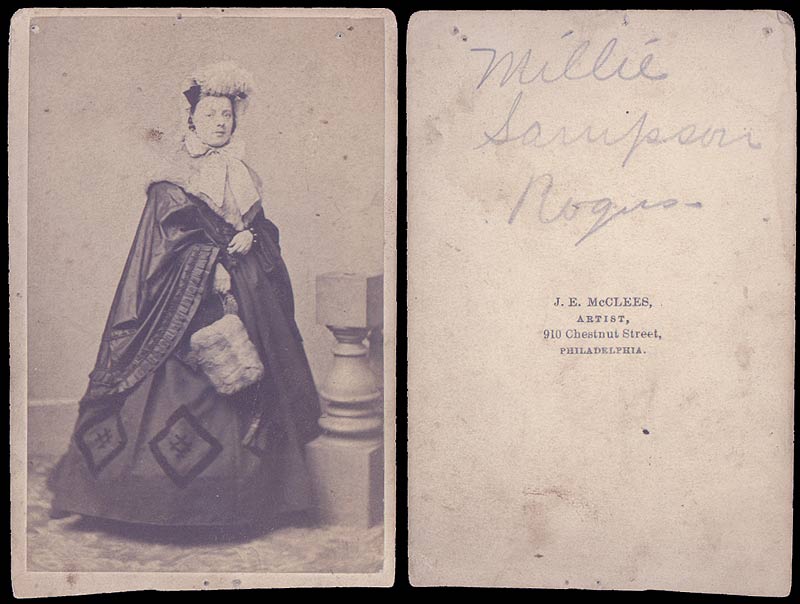 Millie
Sampson
Rogers
J. E. McCLEES,
ARTIST,
910 Chestnut Street,
PHILADELPHIA.